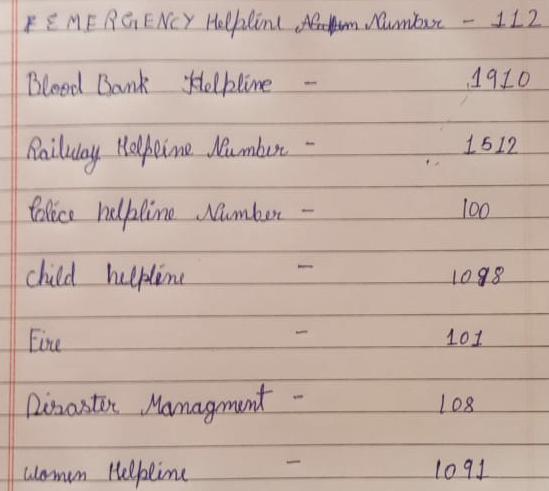 EMERGENCY Helpline Number - 112
Blood Bank Helpline - 1910
Railway Helpline Number - 1512
Police helpline Number - 100
child helpline - 1098
Fire - 101
Disaster Managment - 108
women Helpline - 1091